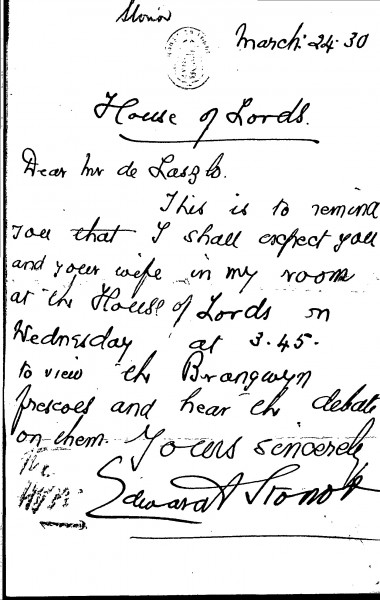 Stonor
March. 24. 30
House of Lords.
Dear Mr de Laszlo.
This is to remind
you that I shall expect you
and your wife in my room
at the House of Lords on
Wednesday at 3.45.
to view the Brangwyn
frescoes and hear the debate
on them. Yours sincerely
Edward Stonor